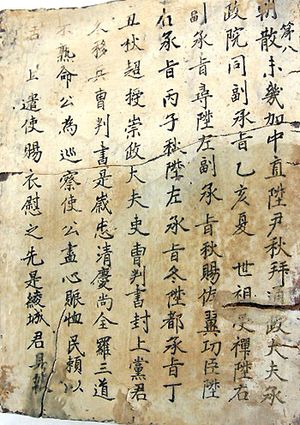 第八
朝散未幾加中直陞尹秋拜通政大夫承
政院同副承旨乙亥夏 世祖受禪陞右
副承旨尋陞左副承旨秋賜佐翼功臣陞
右承旨丙子秋陞左承旨冬陞都承旨丁
丑秋超授崇政大夫吏曹判書封上黨君
移兵曹判書是歲忠清慶尚全羅三道
熟命公為巡察使公盡心賑恤民賴以
活 上遣使賜衣慰之先是綾城君具